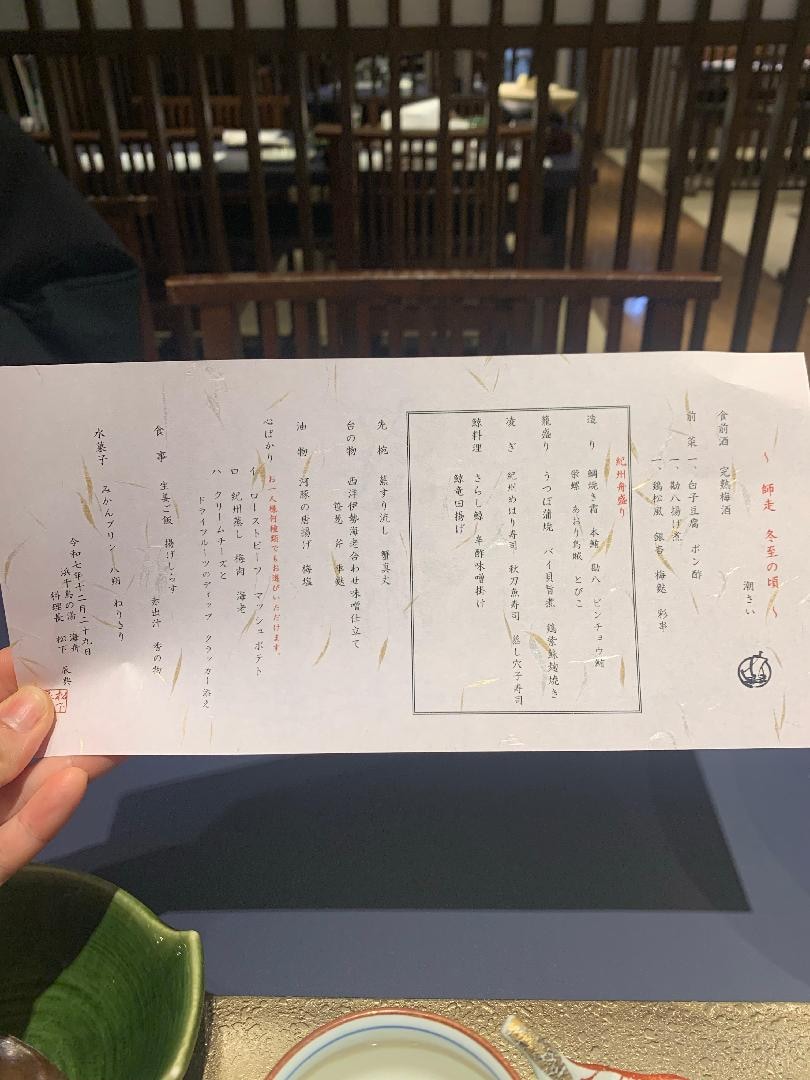 ～ 師走 冬至の頃 ～
潮さい
食前酒 完熟梅酒
前菜 一、白子豆腐 ポン酢
一、勘八揚げ煮
一、鶏松風 銀杏 梅麩 彩串
紀州舟盛り
造り 鯛焼き霜 本鮪 勘八 ビンチョウ鮪
栄螺 あおり烏賊 とびこ
籠盛り うつぼ蒲焼 バイ貝旨煮 鶏紫蘇麹焼き
凌ぎ 紀州めはり寿司 秋刀魚寿司 蒸し穴子寿司
鯨料理 さらし鯨 辛酢味噌掛け
鯨竜田揚げ
先椀 蕪すり流し 蟹真丈
台の物 西洋伊勢海老合わせ味噌仕立て
笹葱 芹 車麩
油物 河豚の唐揚げ 梅塩
心ばかり お一人様何種類でもお選びいただけます。
イ ローストビーフ マッシュポテト
ロ 紀州蒸し 梅肉 海老
ハ クリームチーズと
ドライフルーツのディップ クラッカー添え
食事 生姜ご飯 揚げしらす
赤出汁 香の物
水菓子 みかんプリン 八朔 わりきり
令和七年十二月二十九日
浜千鳥の湯 海舟
料理長 松下